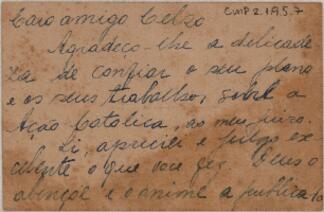 CMP 2.1.9.5.7
Caro amigo Celzo
Agradeço-lhe a delicade
za de confiar o seu plano
e os seus trabalhos, sobre a
Ação Catolica, ao meu juizo.
Li, apreciei e julgo ex
celente o que você fez. Deus o
abençoe e o anime a publica-lo